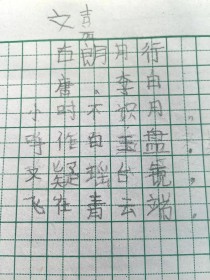 文青
古朗月行
唐、李白
小时不识月。
呼作白玉盘。
又疑瑶台镜，
飞在青去端。